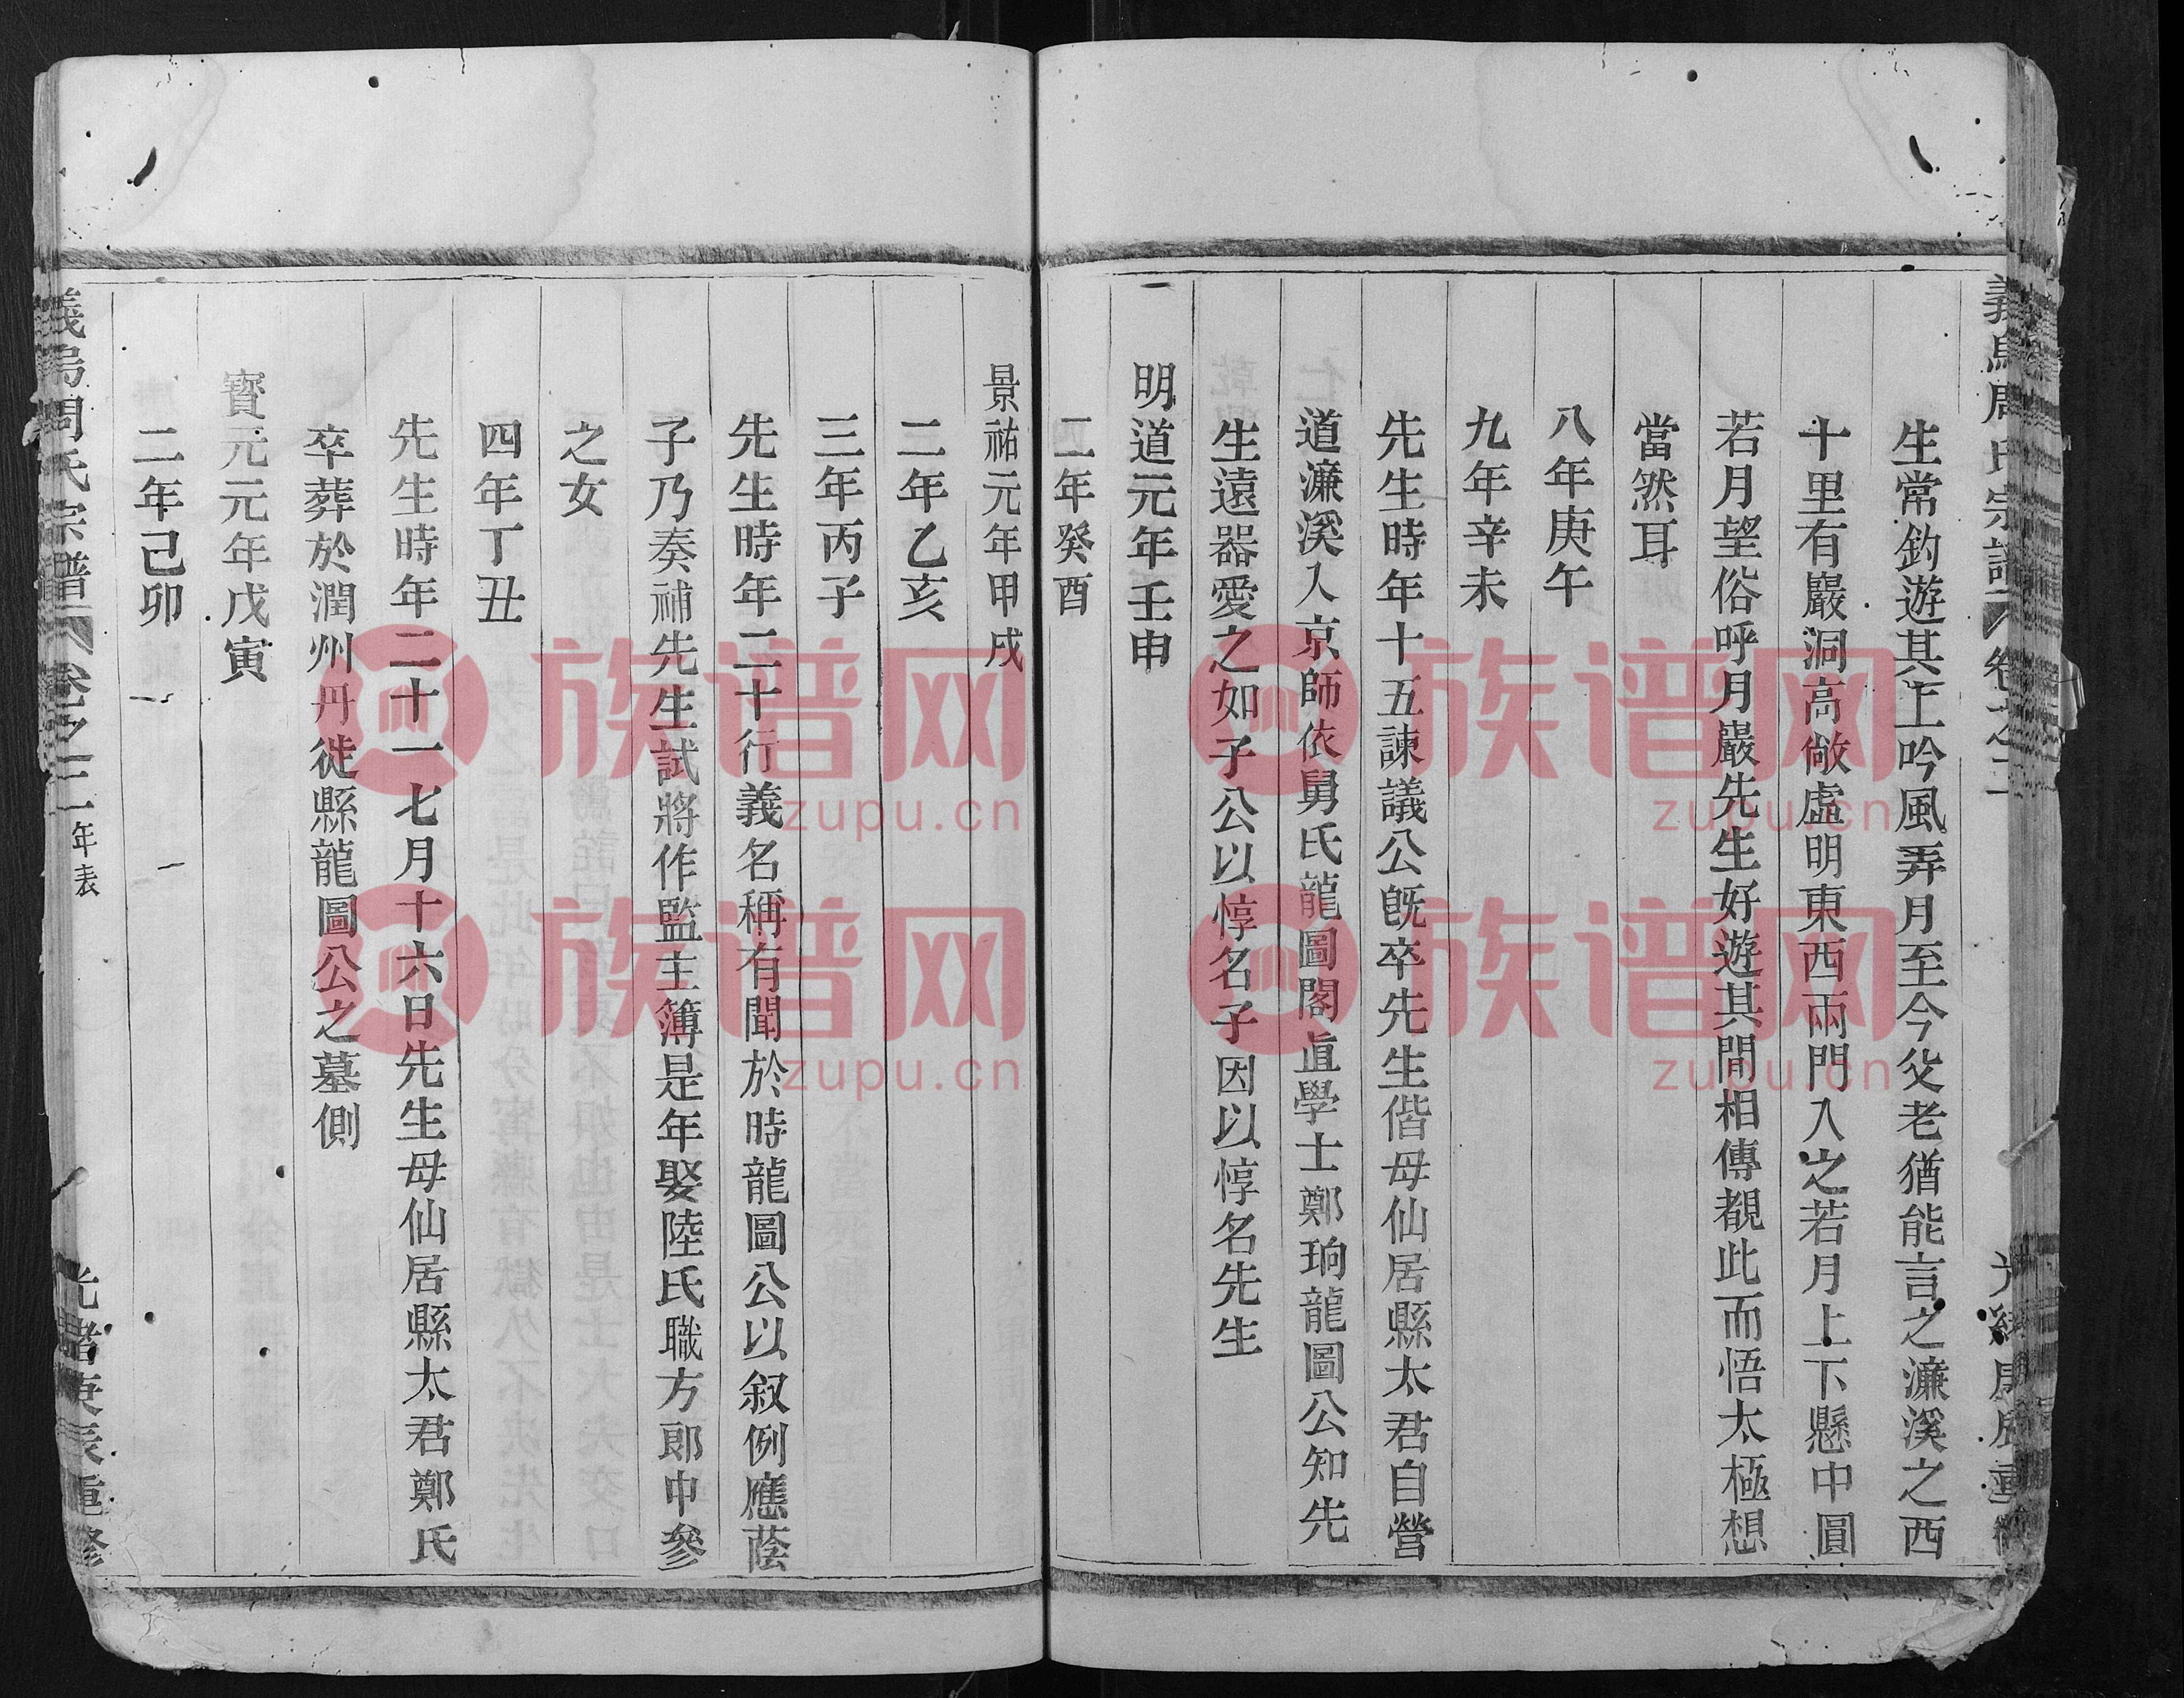 生常釣遊其上吟風弄月至今父老猶能言之濂溪之西
十里有巖洞高敞虛明東西兩門入之若月上下懸中圓
若月望俗呼月巖先生好遊其間相傳覩此而悟太極想
當然耳
八年庚午
九年辛未
先生時年十五諫議公旣卒先生偕母仙居縣太君自營
道濂溪入京師依舅氏龍圖閣直學士鄭珦龍圖公知先
生遠器愛之如子公以惇名子因以惇名先生
明道元年壬申
二年癸酉
景祐元年甲戌
二年乙亥
三年丙子
先生時年二十行義名稱有聞於時龍圖公以叙例應蔭
子乃奏補先生試將作監主簿是年娶陸氏職方郎中參
之女
四年丁丑
先生時年二十一七月十六日先生母仙居縣太君鄭氏
卒葬於潤州丹徒縣龍圖公之墓側
寶元元年戊寅
二年己卯
義烏周氏宗譜 卷之二 年表 光緒庚辰重修
族谱网
zupu.cn
族谱网
zupu.cn
族谱网
zupu.cn
族谱网
zupu.cn